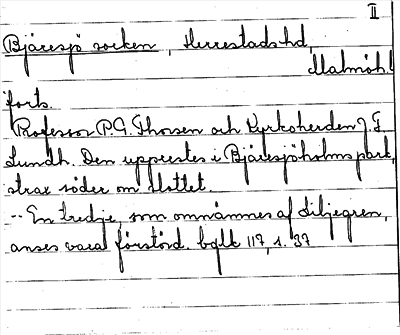 II
Bjäresjö socken, Herrestads hd,
Malmöh. l
forts.
Professor P.G. Thorsen och Kyrkoherden J. G.
Lundh. Den upprestes i Bjäresjöholms park,
strax söder om slottet.
-- En tredje, som omnämnes af Liljegren,
anses vara förstörd. bglk 117, s. 37